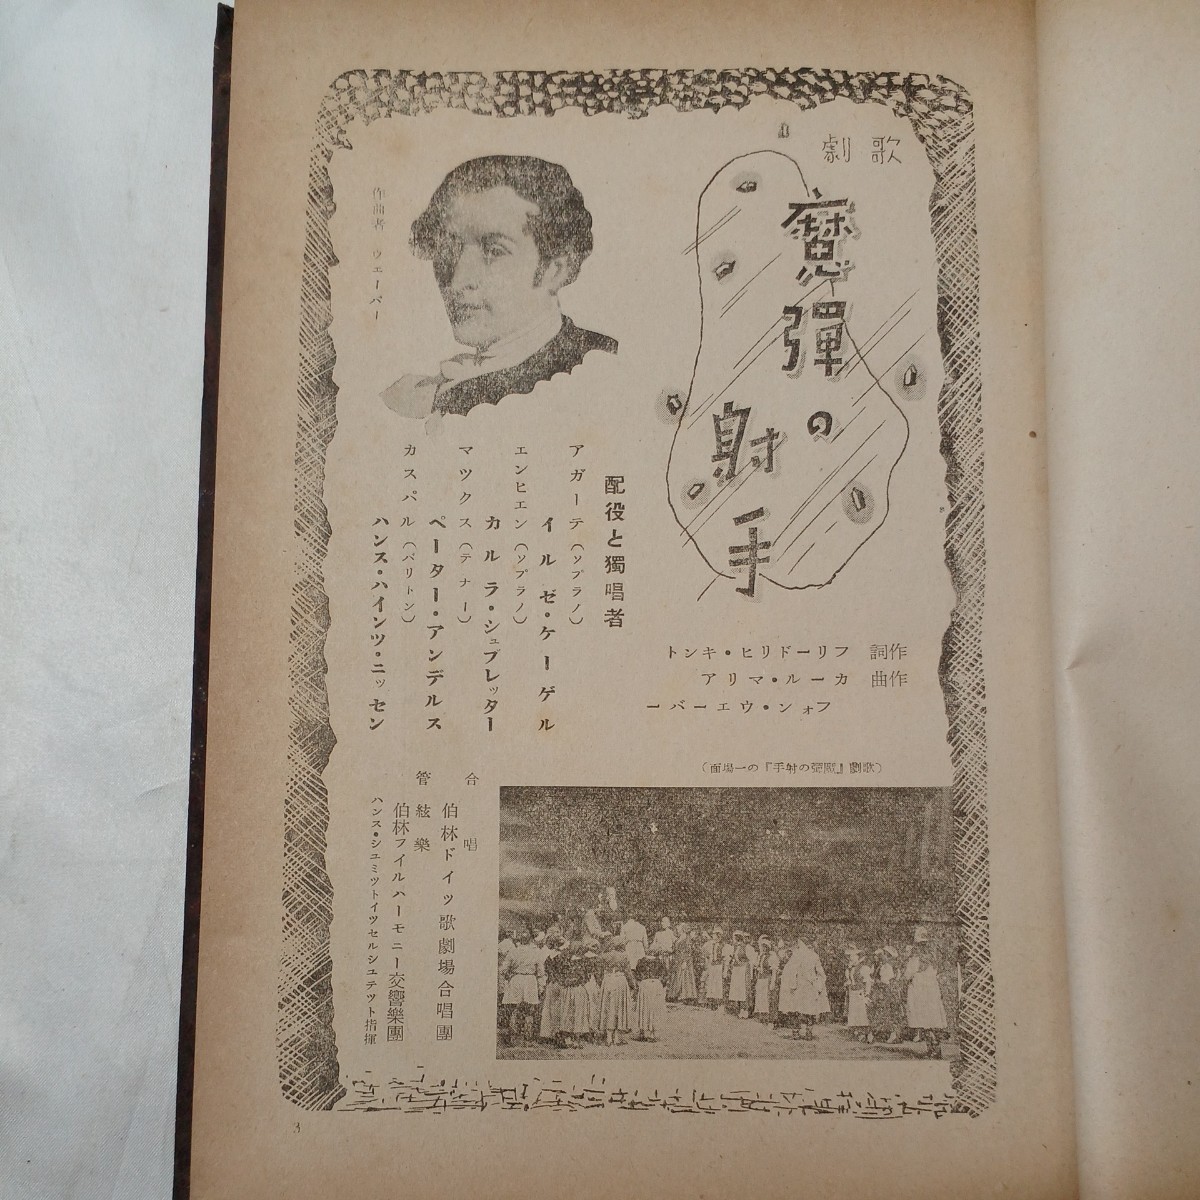 歌劇
魔彈の射手
作詞 フリードリヒ・キント
作曲 カール・マリア
フォン・ウエーバー
作曲者 ウエーバー
配役と獨唱者
アガーテ（ソプラノ）
イルゼ・ケーゲル
エンヒエン（ソプラノ）
カルラ・シュプレッター
マツクス（テナー）
ペーター・アンデルス
カスパル（バリトン）
ハンス・ハインツ・ニッセン
（歌劇『魔彈の射手』の一場面）
合唱
伯林ドイツ歌劇場合唱團
管絃樂
伯林フイルハーモニー交響樂團
ハンス・シユミツトイツセルシユテツト指揮
3